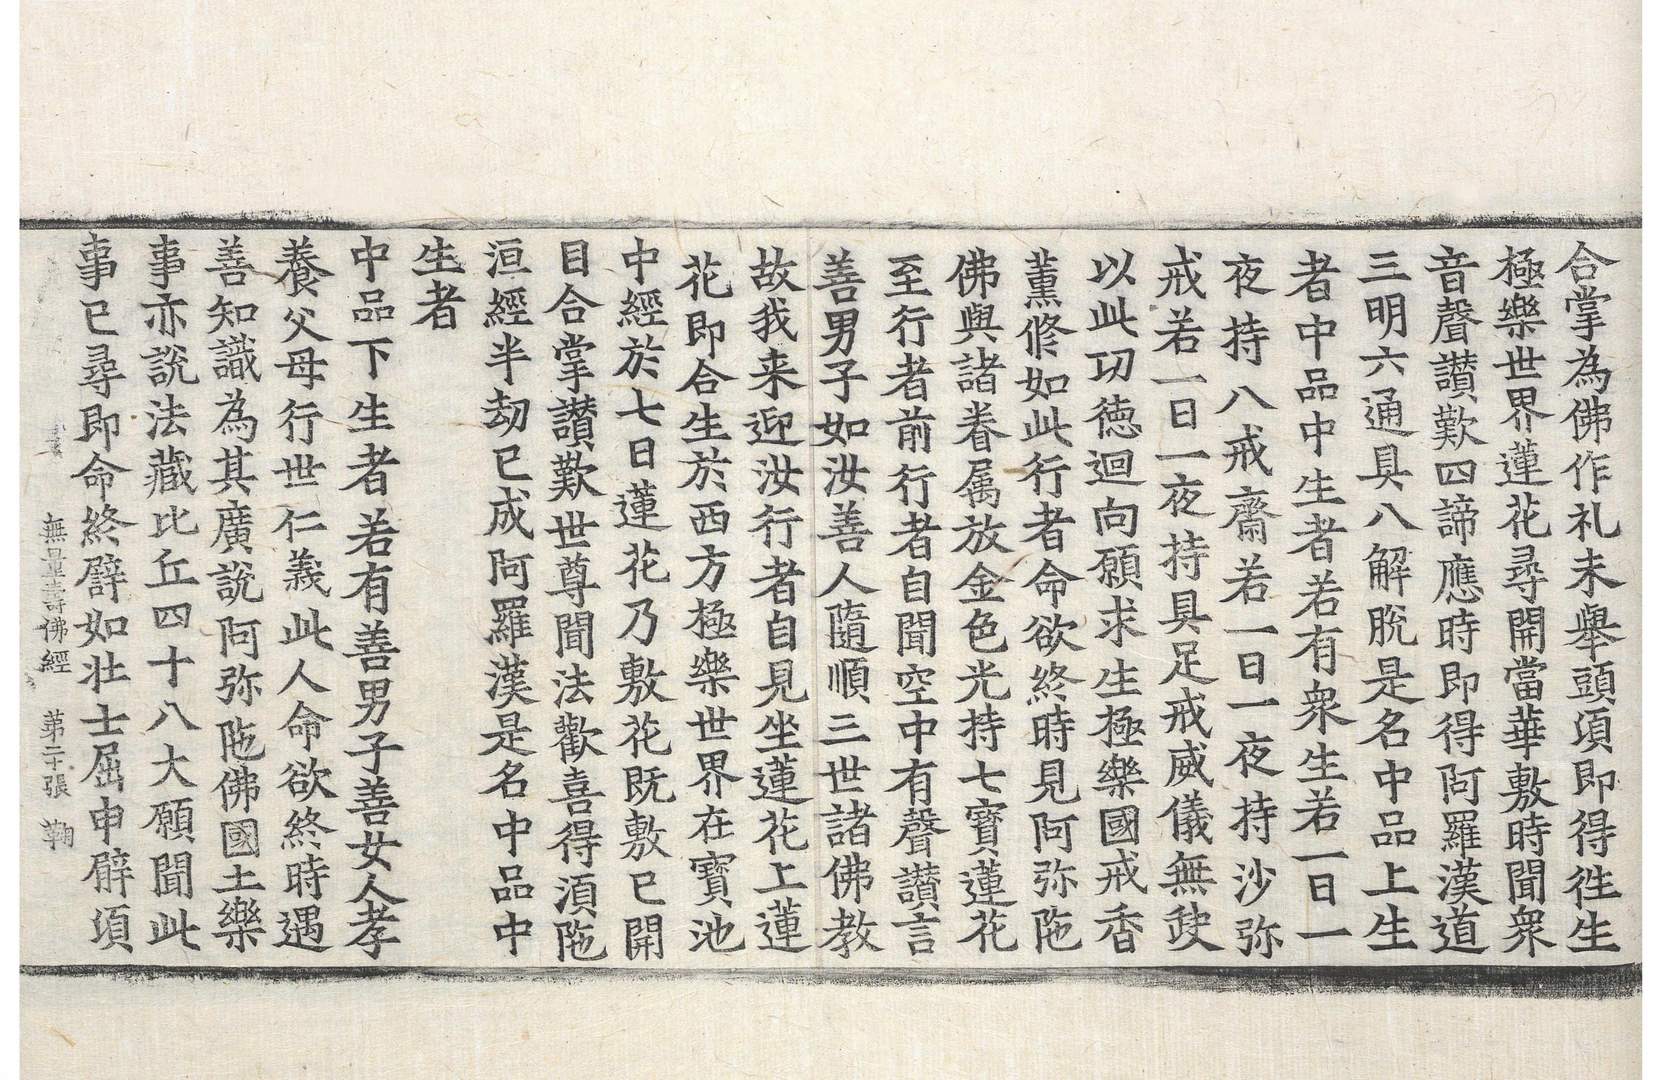 合掌為佛作礼未舉頭項即得徃生
極樂世界蓮花尋開當華敷時聞衆
音聲讃歎四諦應時即得阿羅漢道
三明六通具八解脫是名中品上生
者中品中生者若有衆生若一日一
夜持八戒齋若一日一夜持沙弥
戒若一日一夜持具足戒威儀無䡖
以此㓛徳迴向願求生極樂國戒香
薫修如此行者命欲終時見阿弥陁
佛與諸眷属放金色光持七寶蓮花
至行者前行者自聞空中有聲讃言
善男子如汝善人隨順三世諸佛教
故我来迎汝行者自見坐蓮花上蓮
花即合生於西方極樂世界在寶池
中經於七日蓮花乃敷花既敷已開
目合掌讃歎世尊聞法歡喜得湏陁
洹經半劫已成阿羅漢是名中品中
生者
中品下生者若有善男子善女人孝
養父母行世仁義此人命欲終時遇
善知識為其廣說阿弥陁佛國土樂
事亦說法藏比丘四十八大願聞此
事已尋即命終譬如壮士屈申臂項
無量壽佛經 第二十張 鞠